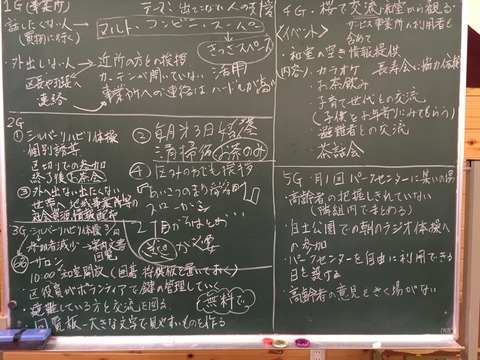 1G(事業所)
テーマ：出てこない人の支援
話したくない人
(買物に行く)
マルト・コンビニ・スーパー
さっきスペース
活用
・外出しない人→近所の方との挨拶
カーテンが開いていない
区長や班長へ連絡
事業所への連絡はハードルが高い
2G
①シルバーリハビリ体操
個別誘導
区切りでの参加
終了後に茶会
③外へ出ない出たくない
世帯へ地域事業所等の
社会資源情報配布
②毎月第3日曜会
清掃後お茶のみ
④区以外でも挨拶
あいさつのまち
スローガンに
必要
3G シルバーリハビリ体操
参加者減少→案内文書
回覧
サロン
10:00~和室開放(囲碁・将棋板を置いておく)
区役員がボランティアで鍵の管理していく
避難している方と交流を図る
無料で
回覧板→大きな文字で見やすいものを作る
4G・桜で交流
〈イベント〉
サービス事業所の利用者も
含めて
・和室の空き情報提供
内容)・カラオケ
長寿会に協力依頼
・お茶飲み
・子育て世代との交流
(子供をお年寄りにみてもらう)
・避難者との交流
・茶話会
5G・月1回パークセンターに集いの場
・高齢者の把握しきれていない
(隣組内でまとめる)
・自土公園での朝のラジオ体操への参加
・パークセンターを自由に利用できる
日を設ける
・高齢者の意見をきく場がない